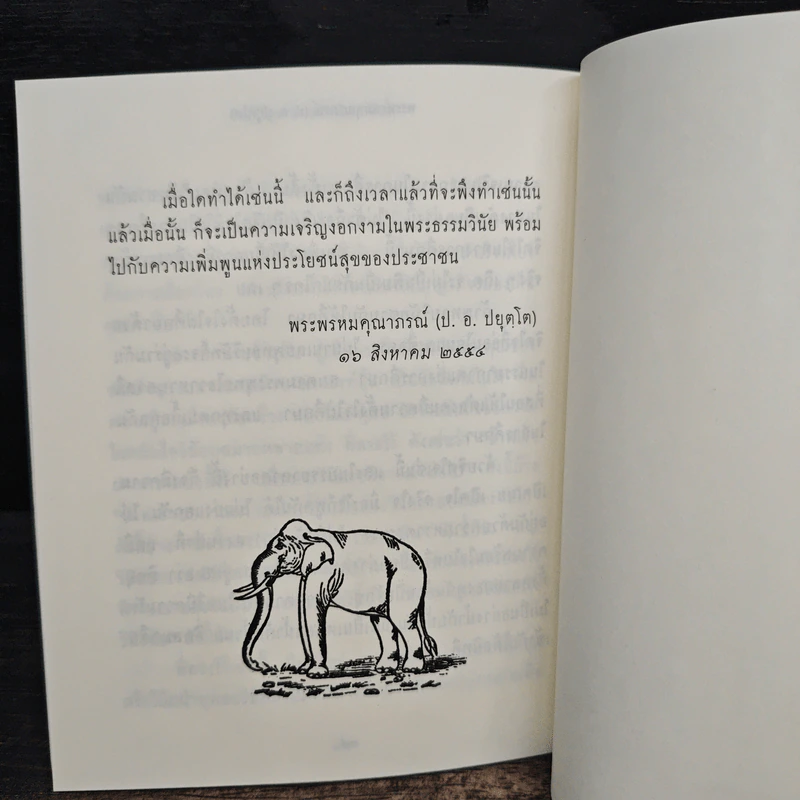 เมื่อใดทำได้เช่นนี้ และก็ถึงเวลาแล้วที่จะพึงทำเช่นนั้น
แล้วเมื่อนั้น ก็จะเป็นความเจริญงอกงามในพระธรรมวินัย พร้อม
ไปกับความเพิ่มพูนแห่งประโยชน์สุขของประชาชน
พระพรหมคุณาภรณ์ (ป. อ. ปยุตฺโต)
๑๖ สิงหาคม ๒๕๕๔